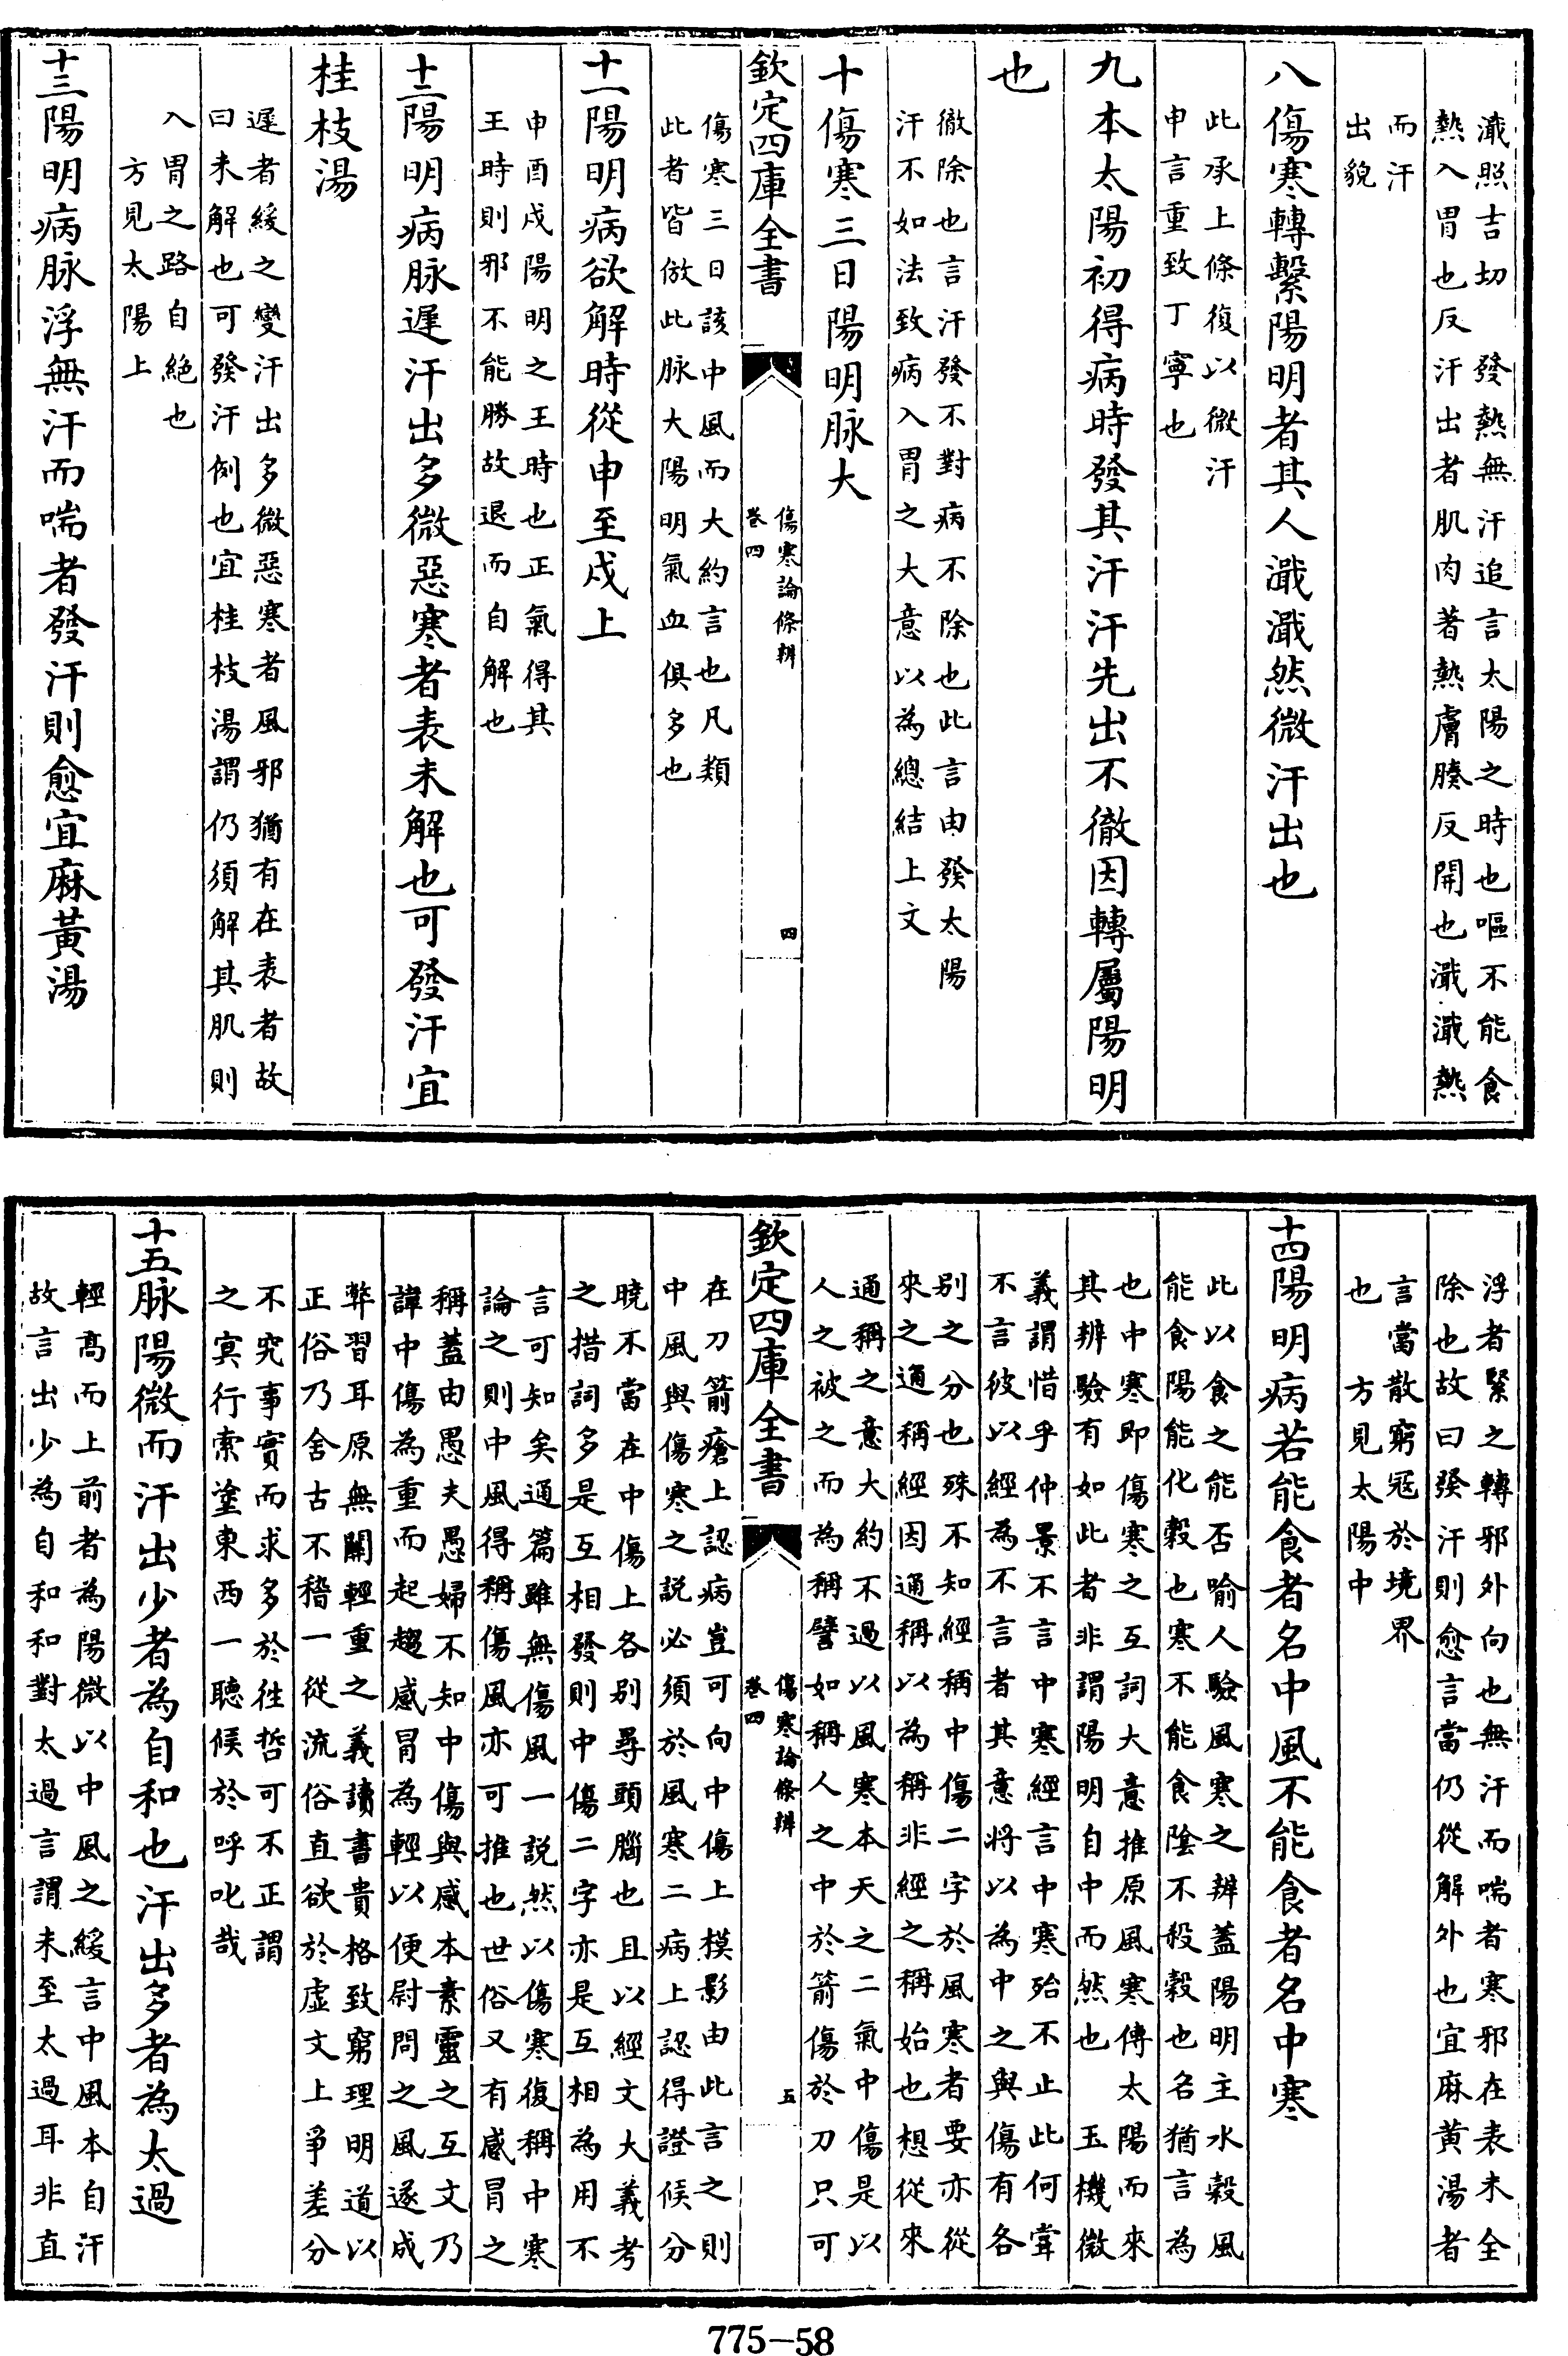 濈照吉切　發熱無汗追言太陽之時也嘔不能食
熱入胃也反汗出者肌肉著熱膚腠反開也濈濈熱
而汗
出貌
八傷寒轉繫陽明者其人濈濈然微汗出也
此承上條復以微汗
申言重致丁寧也
九本太陽初得病時發其汗汗先出不徹因轉屬陽明
也
徹除也言汗發不對病不除也此言由發太陽
汗不如法致病入胃之大意以為總結上文
十傷寒三日陽明脉大
欽定四庫全書
傷寒論條辨
卷四
四
傷寒三日該中風而大約言也凡類
此者皆倣此脉大陽明氣血俱多也
十一陽明病欲解時從申至戌上
申酉戌陽明之王時也正氣得其
王時則邪不能勝故退而自解也
十二陽明病脉遲汗出多微惡寒者表未解也可發汗宜
桂枝湯
遲者緩之變汗出多微惡寒者風邪猶有在表者故
曰未解也可發汗例也宜桂枝湯謂仍須解其肌則
入胃之路自絶也
方見太陽上
十三陽明病脉浮無汗而喘者發汗則愈宜麻黃湯
浮者緊之轉邪外向也無汗而喘者寒邪在表未全
除也故曰發汗則愈言當仍從解外也宜麻黃湯者
言當散窮冦於境界
也　方見太陽中
十四陽明病若能食者名中風不能食者名中寒
此以食之能否喻人驗風寒之辨蓋陽明主水穀風
能食陽能化穀也寒不能食陰不殺穀也名猶言為
也中寒即傷寒之互詞大意推原風寒傳太陽而來
其辨驗有如此者非謂陽明自中而然也　玉機微
義謂惜乎仲景不言中寒經言中寒殆不止此何甞
不言彼以經為不言者其意將以為中之與傷有各
别之分也殊不知經稱中傷二字於風寒者要亦從
來之通稱經因通稱以為稱非經之稱始也想從來
通稱之意大約不過以風寒本天之二氣中傷是以
人之被之而為稱譬如稱人之中於箭傷於刀只可
欽定四庫全書
傷寒論條辨
卷四
五
在刀箭瘡上認病豈可向中傷上模影由此言之則
中風與傷寒之説必須於風寒二病上認得證候分
曉不當在中傷上各别尋頭腦也且以經文大義考
之措詞多是互相發則中傷二字亦是互相為用不
言可知矣通篇雖無傷風一説然以傷寒復稱中寒
論之則中風得稱傷風亦可推也世俗又有感冒之
稱蓋由愚夫愚婦不知中傷與感本素靈之互文乃
諱中傷為重而起趨感冒為輕以便尉問之風遂成
弊習耳原無關輕重之義讀書貴格致窮理明道以
正俗乃舍古不稽一從流俗直欲於虛文上爭差分
不究事實而求多於往哲可不正謂
之㝠行索塗東西一聽候於呼叱哉
十五脉陽微而汗出少者為自和也汗出多者為太過
輕髙而上前者為陽微以中風之緩言中風本自汗
故言出少為自和和對太過言謂未至太過耳非直
775—58